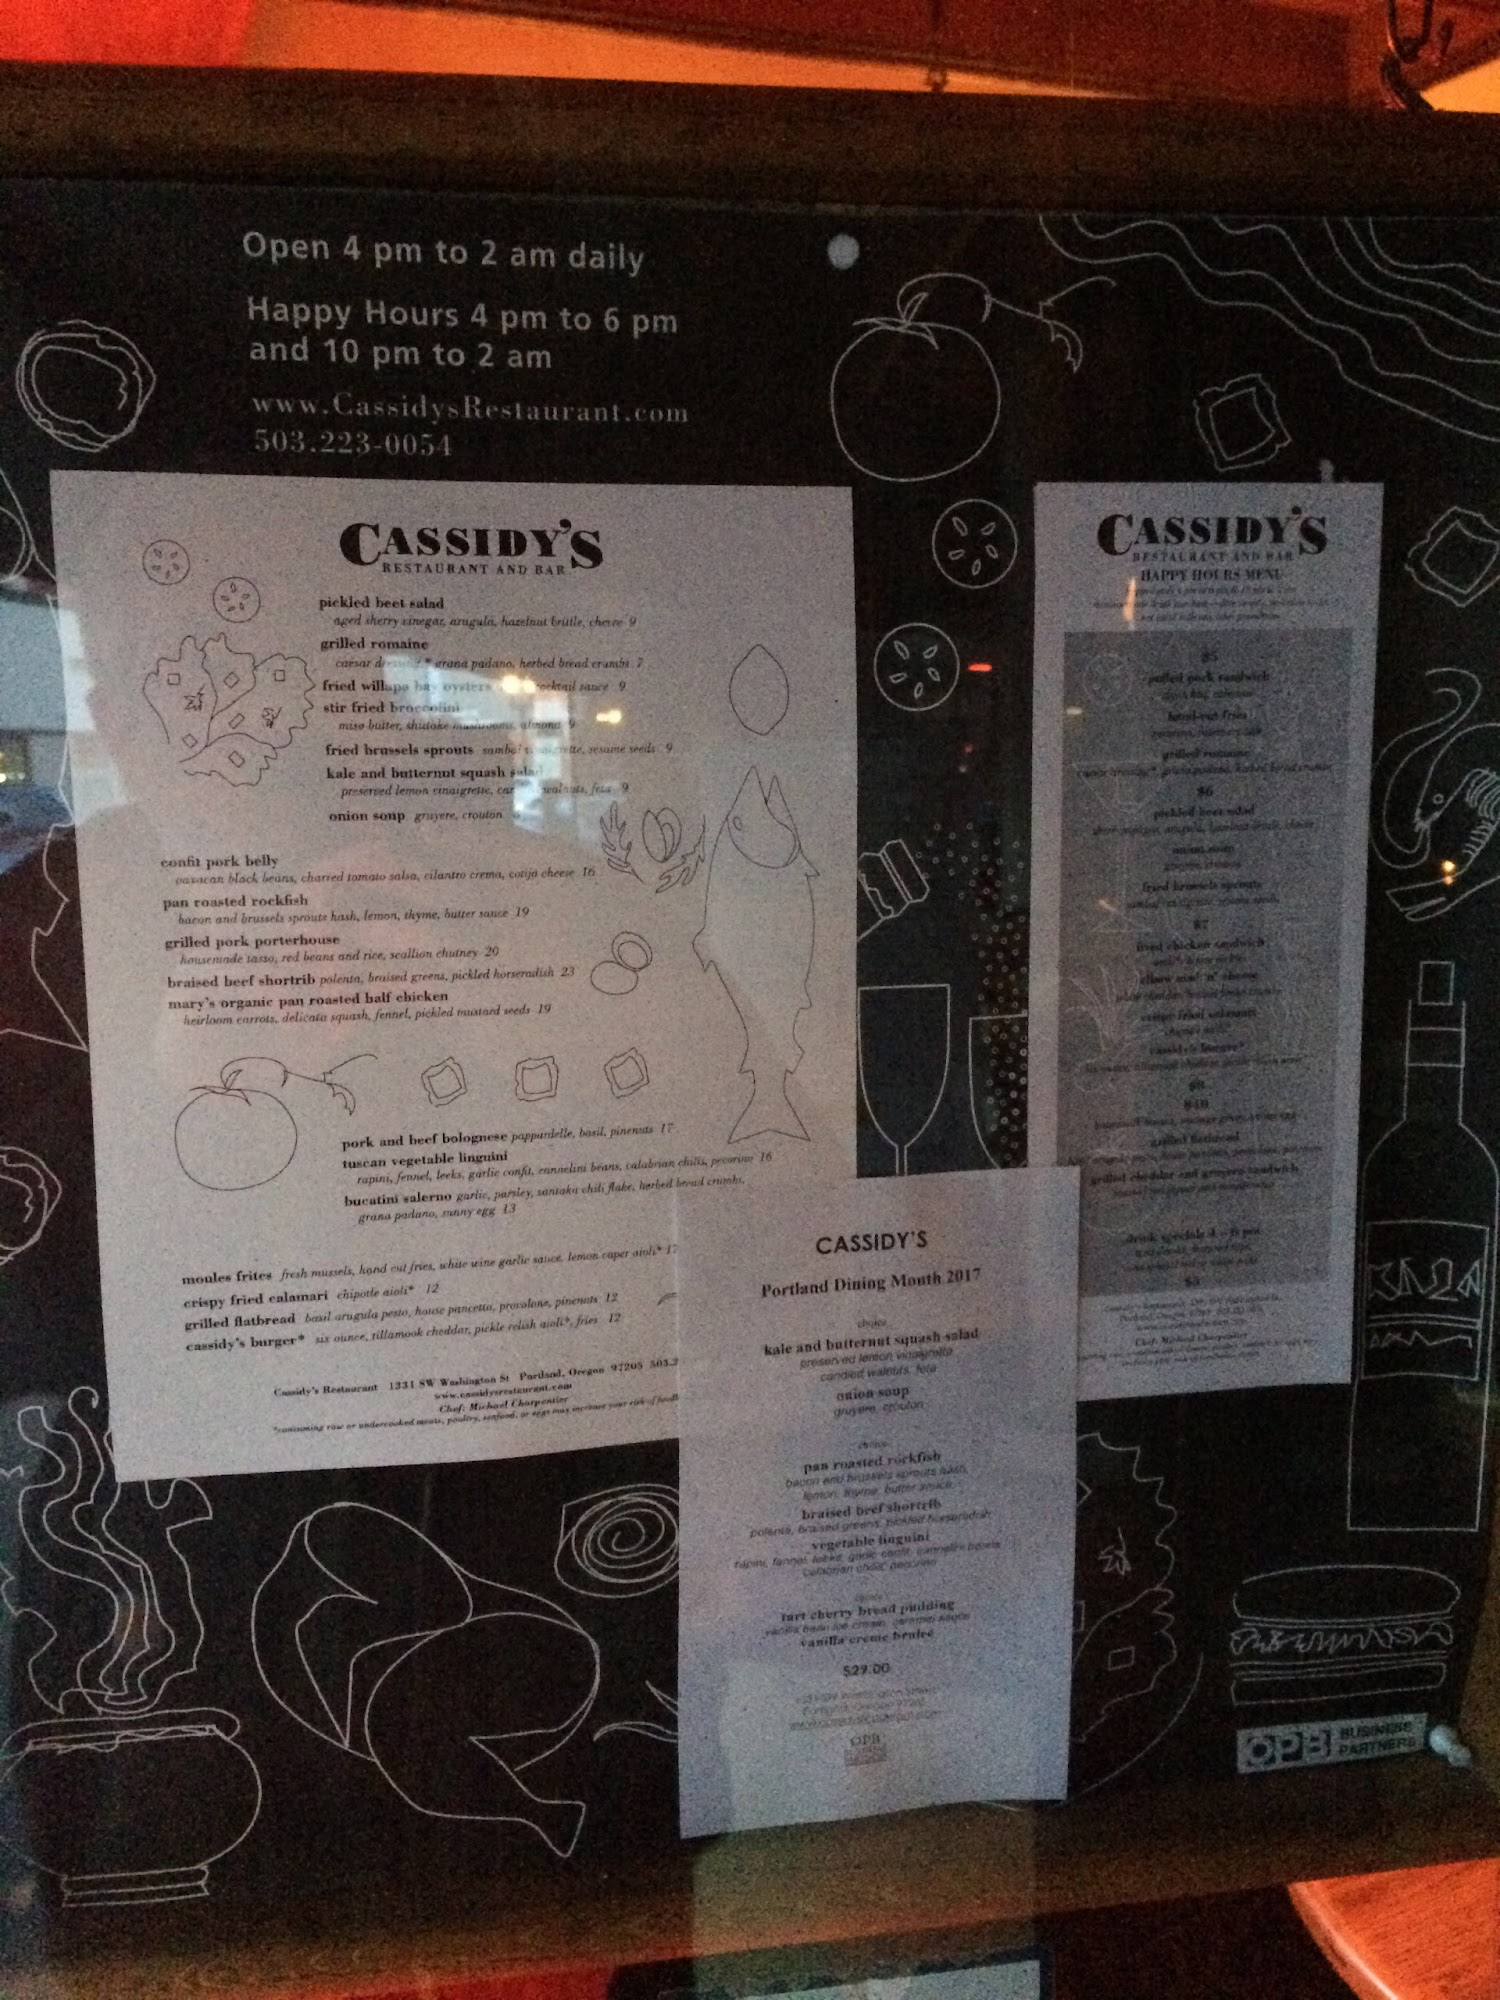 Open 4 pm to 2 am daily
Happy Hours 4 pm to 6 pm
and 10 pm to 2 am
www.CassidysRestaurant.com
503.223-0054
CASSIDY'S
RESTAURANT AND BAR
pickled beet salad
aged sherry vinegar, arugula, hazelnut brittle, chevre 9
grilled romaine
caesar grana padano, herbed bread crumbs 7
fried willapa bay oysters cocktail sauce 9
stir fried broccolini
miso butter, shiitake mushrooms, almond 9
fried brussels sprouts sambal vinaigrette, sesame seeds 9
kale and butternut squash salad
preserved lemon vinaigrette, walnuts, feta 9
onion soup gruyere, crouton
confit pork belly
oaxacan black beans, charred tomato salsa, cilantro crema, cotija cheese 16
pan roasted rockfish
bacon and brussels sprouts hash, lemon, thyme, butter sauce 19
grilled pork porterhouse
housemade tasso, red beans and rice, scallion chutney 20
braised beef shortrib polenta, braised greens, pickled horseradish 23
mary's organic pan roasted half chicken
heirloom carrots, delicata squash, fennel, pickled mustard seeds 19
pork and beef bolognese pappardelle, basil, pinenuts 17
tuscan vegetable linguini
rapini, fennel, leeks, garlic confit, cannelini beans, calabrian chilis, pecorino 16
bucatini salerno garlic, parsley, santaka chili flake, herbed bread crumbs,
grana padano, sunny egg 13
moules frites fresh mussels, hand cut fries, white wine garlic sauce, lemon caper aioli* 17
crispy fried calamari chipotle aioli* 12
grilled flatbread basil arugula pesto, house pancetta, provolone, pinenuts 12
cassidy's burger* six ounce, tillamook cheddar, pickle relish aioli*, fries 12
Cassidy's Restaurant 1331 SW Washington St Portland, Oregon 97205 503.2
www.cassidysrestaurant.com
Chef: Michael Charpentier
*consuming raw or undercooked meats, poultry, seafood, or eggs may increase your risk of
CASSIDY'S
RESTAURANT AND BAR
HAPPY HOURS MENU
$5
pulled pork sandwich
hand-cut fries
grilled romaine
caesar dressing*, grana padano, herbed bread crumbs
$6
pickled beet salad
onion soup
fried brussels sprouts
$7
fried chicken sandwich
elbow mac 'n' cheese
crispy fried calamari
cassidy's burger*
grilled flatbread
grilled cheddar and gruyere sandwich
$5
Chef: Michael Charpentier
CASSIDY'S
Portland Dining Month 2017
choice
kale and butternut squash salad
preserved lemon vinaigrette
candied walnuts, feta
onion soup
gruyere, crouton
choice
pan roasted rockfish
bacon and brussels sprouts hash,
lemon, thyme, butter sauce
braised beef shortrib
polenta, braised greens, pickled horseradish
vegetable linguini
rapini, fennel, leeks, garlic confit, cannelini beans
calabrian chilis, pecorino
tart cherry bread pudding
vanilla bean ice cream, caramel sauce
vanilla creme brulee
$29.00
OPB
OPB BUSINESS
PARTNERS